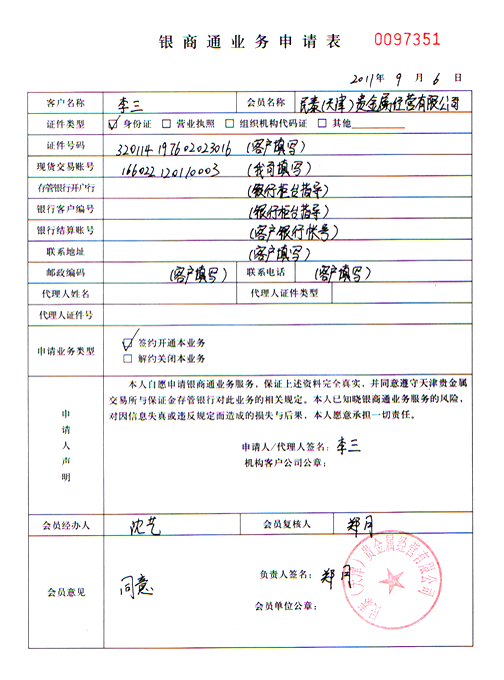 银商通业务申请表 0097351
2011年 9 月 6 日
客户名称 李三 会员名称 民泰(天津)贵金属经营有限公司
证件类型 ☑ 身份证 □ 营业执照 □ 组织机构代码证 □ 其他
证件号码 320114 197602023016 (客户填写)
现货交易账号 166022120110003 (我司填写)
存管银行开户行 (银行柜台指导)
银行客户编号 (银行柜台指导)
银行结算账号 (客户银行帐号)
联系地址 (客户填写)
邮政编码 (客户填写) 联系电话 (客户填写)
代理人姓名 代理人证件类型
代理人证件号
申请业务类型 ☑ 签约开通本业务
□ 解约关闭本业务
申请人声明
本人自愿申请银商通业务服务，保证上述资料完全真实，并同意遵守天津贵金属
交易所与保证金存管银行对此业务的相关规定。本人已知晓银商通业务服务的风险，
对因信息失真或违反规定而造成的损失与后果，本人愿意承担一切责任。
申请人/代理人签名：李三
机构客户公司公章：
会员经办人 沈艺 会员复核人 郑月
会员意见 同意 负责人签名：郑月
会员单位公章：
民泰（天津）贵金属经营有限公司